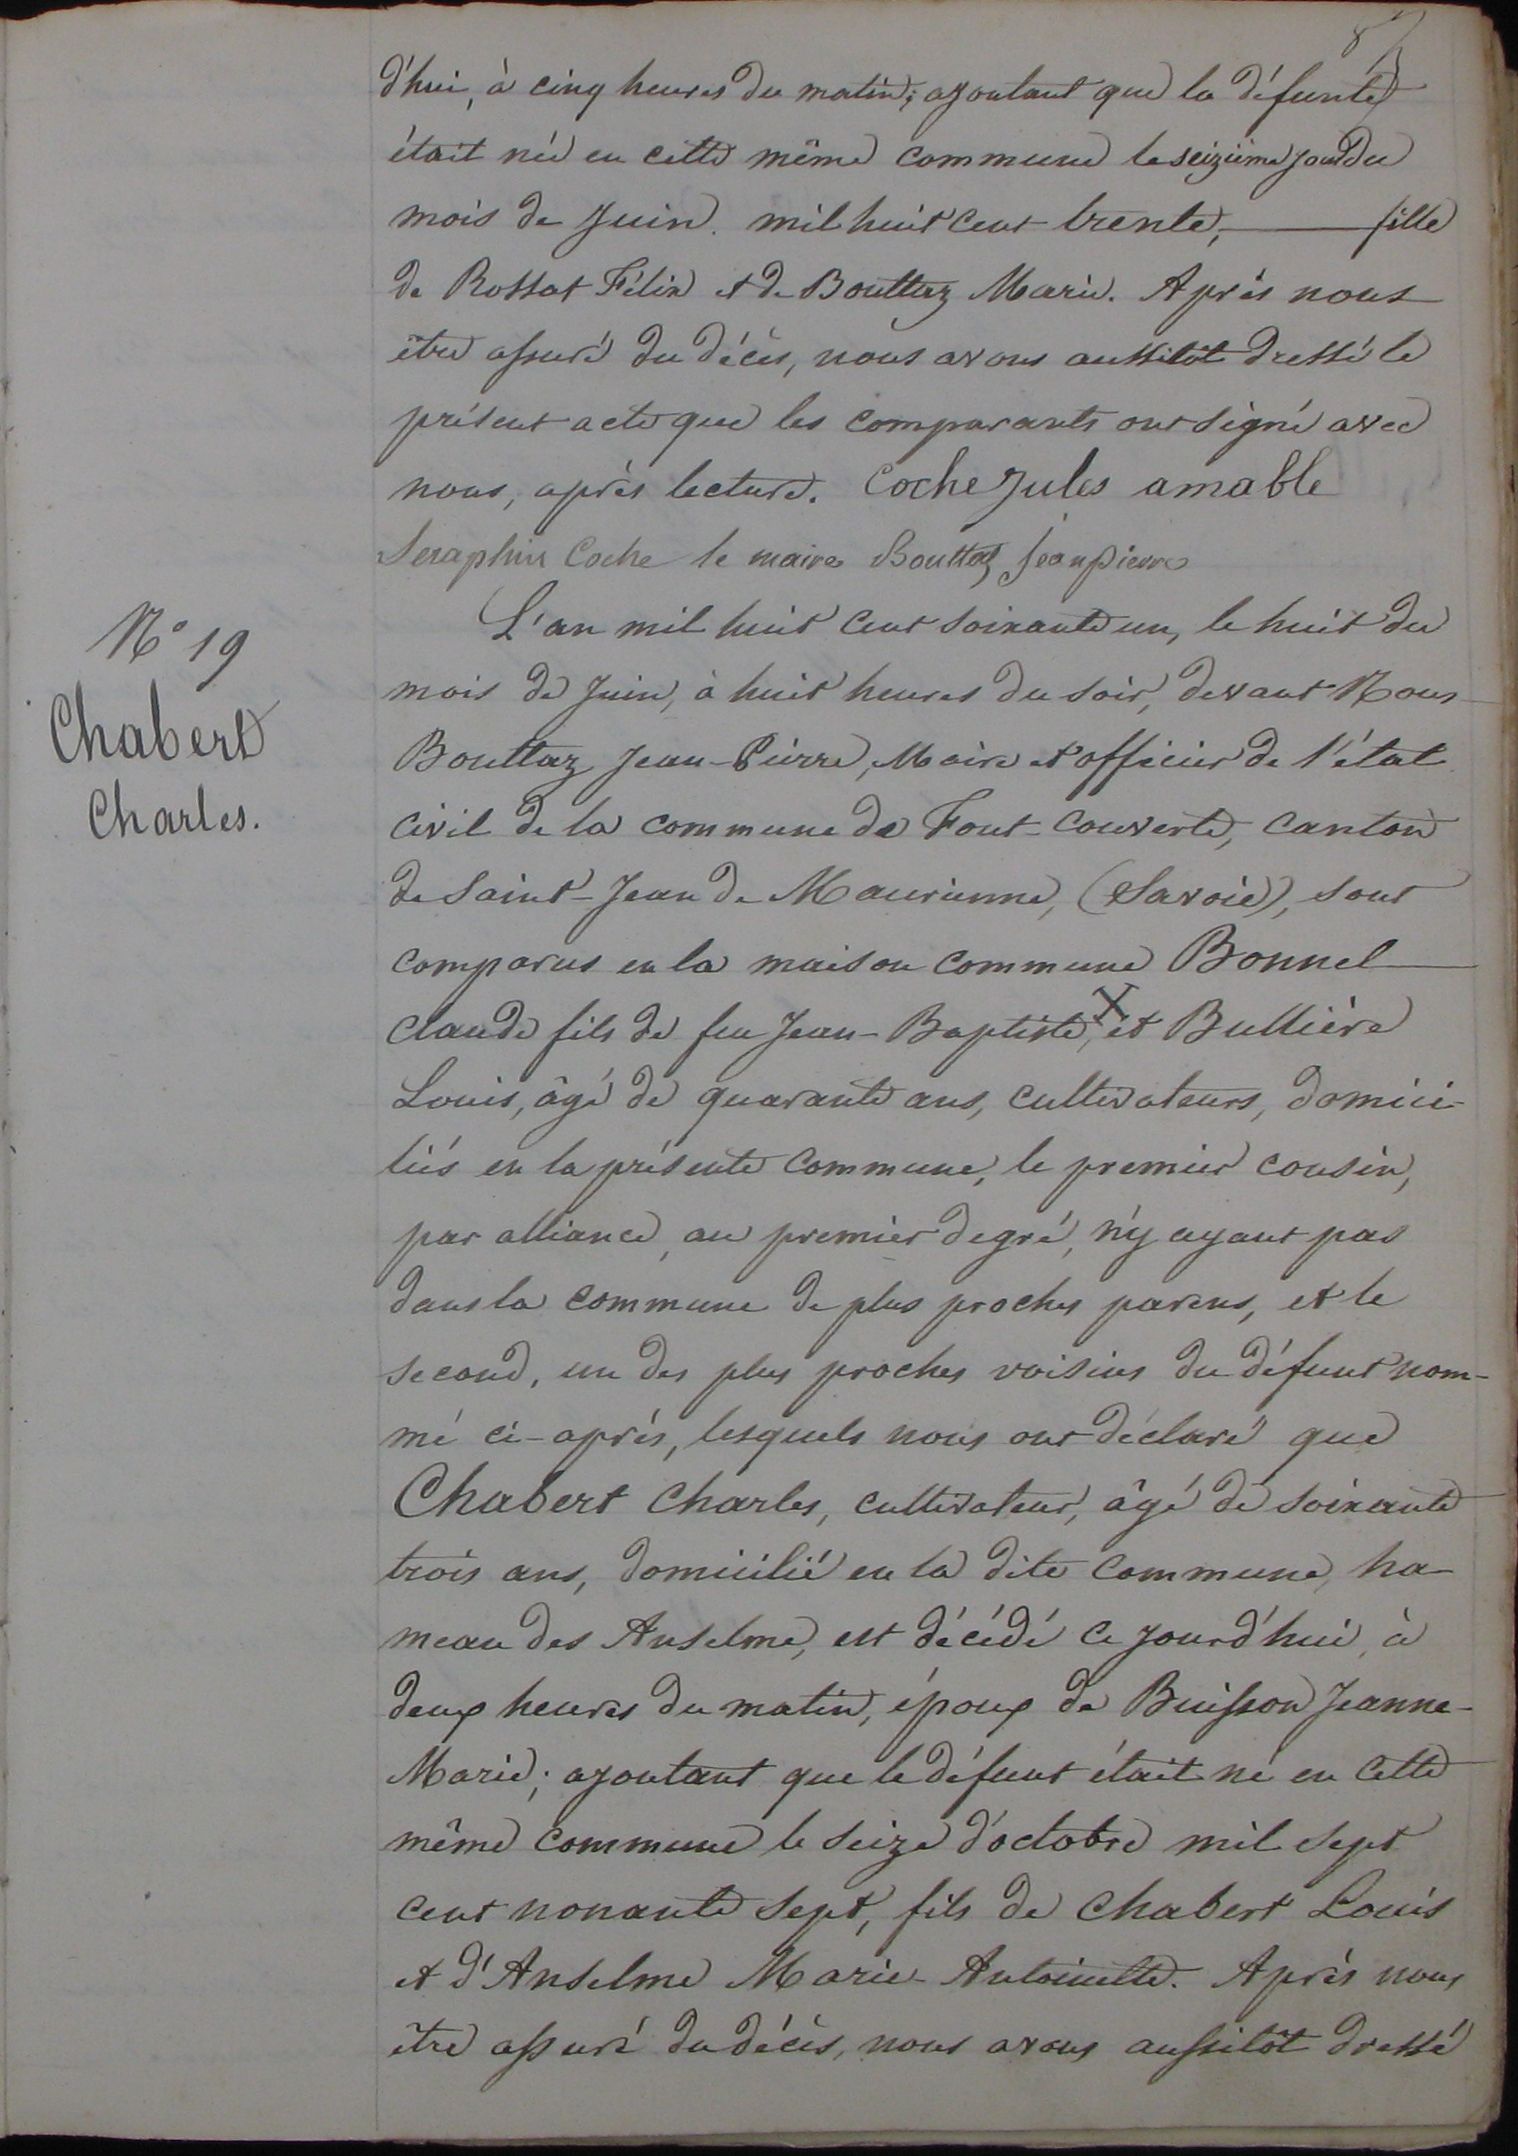 d'hui, à cinq heures du matin; ajoutant que la défunte
était née en cette même commune le seizième jour du
mois de Juin mil huit cent trente, fille
de Rossat Félix et de Bouttaz Marie. Après nous
être assuré du décès, nous avons aussitôt dressé le
présent acte que les comparants ont signé avec
nous, après lecture. Coche Jules amable
Seraphin Coche le maire Bouttaz Jean pierre
N° 19
Chabert
Charles.
L'an mil huit cent soixante un, le huit du
mois de Juin, à huit heures du soir, devant Nous
Bouttaz Jean-Pierre, Maire et officier de l'état
civil de la commune de Font-Couverte, canton
de Saint-Jean de Maurienne, (Savoie), sont
comparus en la maison commune Bonnel
Claude fils de feu Jean-Baptiste, X et Bullière
Louis, âgé de quarante ans, cultivateurs, domici-
liés en la présente commune, le premier cousin,
par alliance, au premier degré, n'y ayant pas
dans la commune de plus proches parens, et le
second, un des plus proches voisins du défunt nom-
mé ci-après, lesquels nous ont déclaré que
Chabert Charles, cultivateur, âgé de soixante
trois ans, domicilié en la dite commune, ha-
meau des Anselme, est décédé ce jourd'hui, à
deux heures du matin, époux de Buisson Jeanne-
Marie; ajoutant que le défunt était né en cette
même commune le seize d'octobre mil sept
cent nonante sept, fils de Chabert Louis
et d'Anselme Marie-Antoinette. Après nous
être assuré du décès, nous avons aussitôt dressé